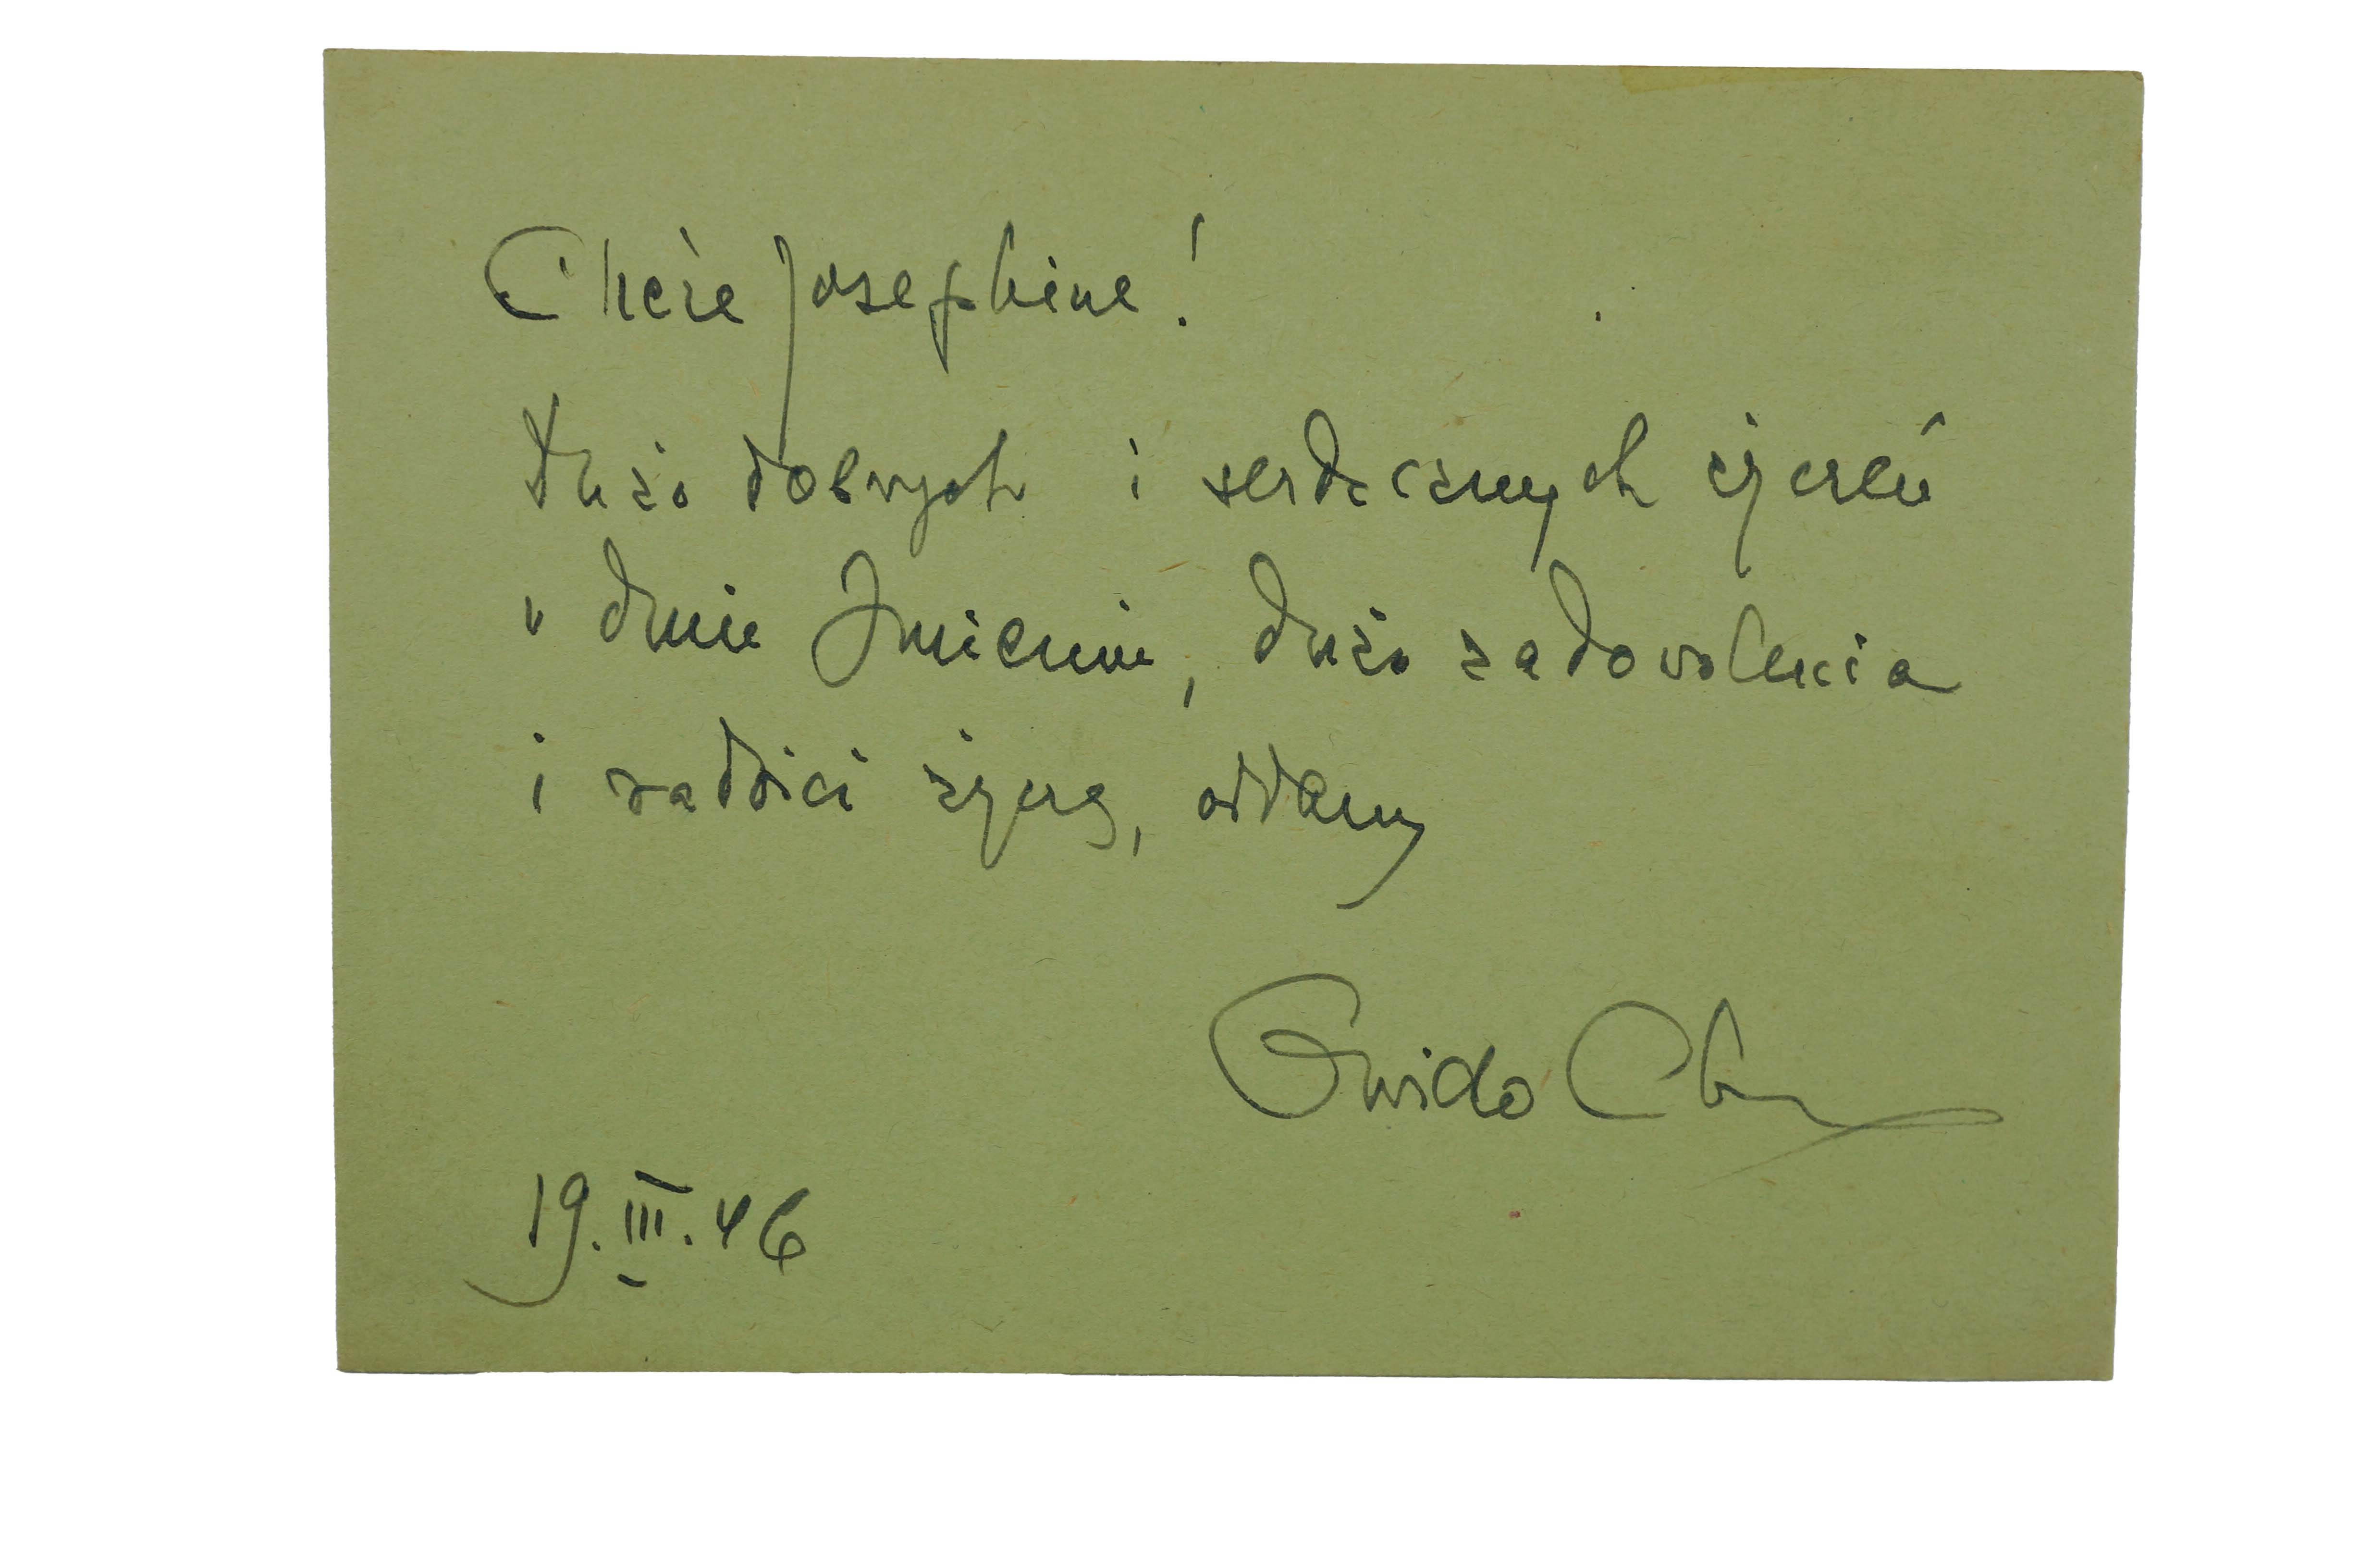 Chère Josephine!
Dużo dobrych i serdecznych życzeń
w dniu Imienin, dużo zadowolenia
i radości życzę, oddany
Gwido
19.III.46